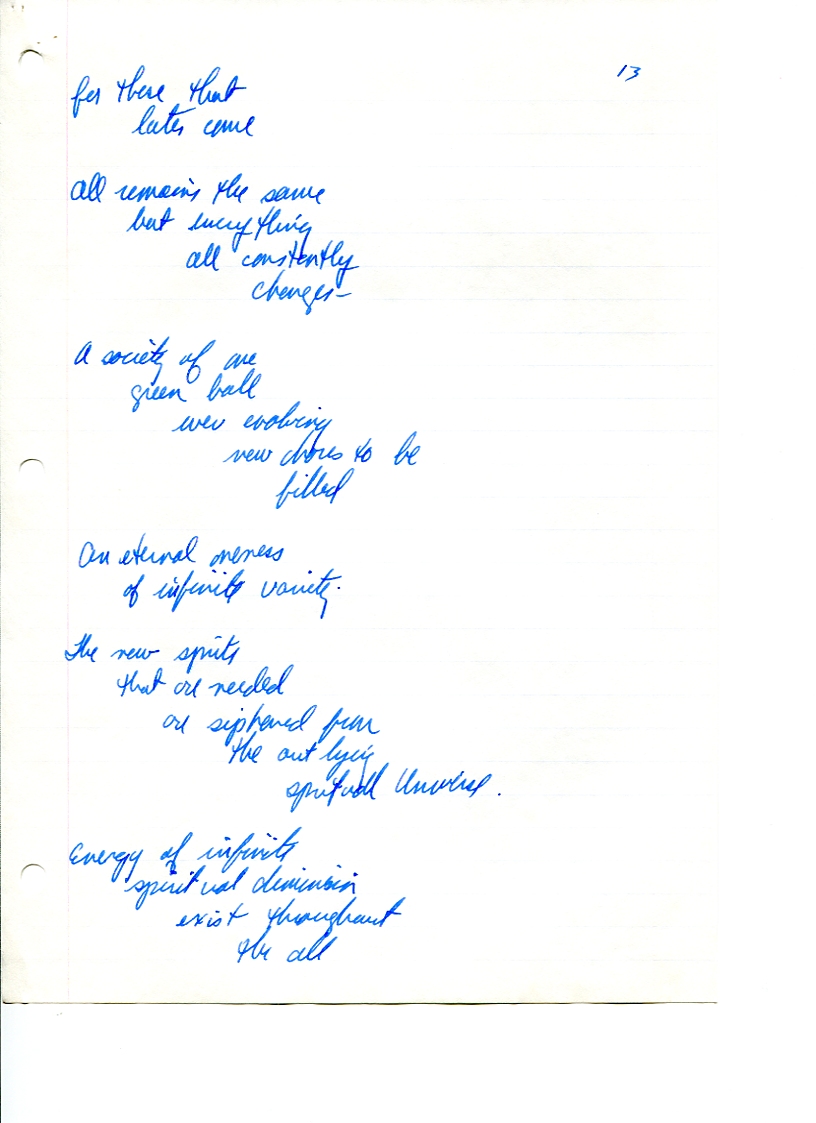 13
for these that
later come
all remains the same
but everything
all constantly
changes-
A society of one
green ball
ever evolving
new chores to be
filled
An eternal oneness
of infinite variety.
The new spirits
that are needed
are siphoned from
the out lying
spiritual Universe.
Energy of infinite
spiritual dimension
exist throughout
the all